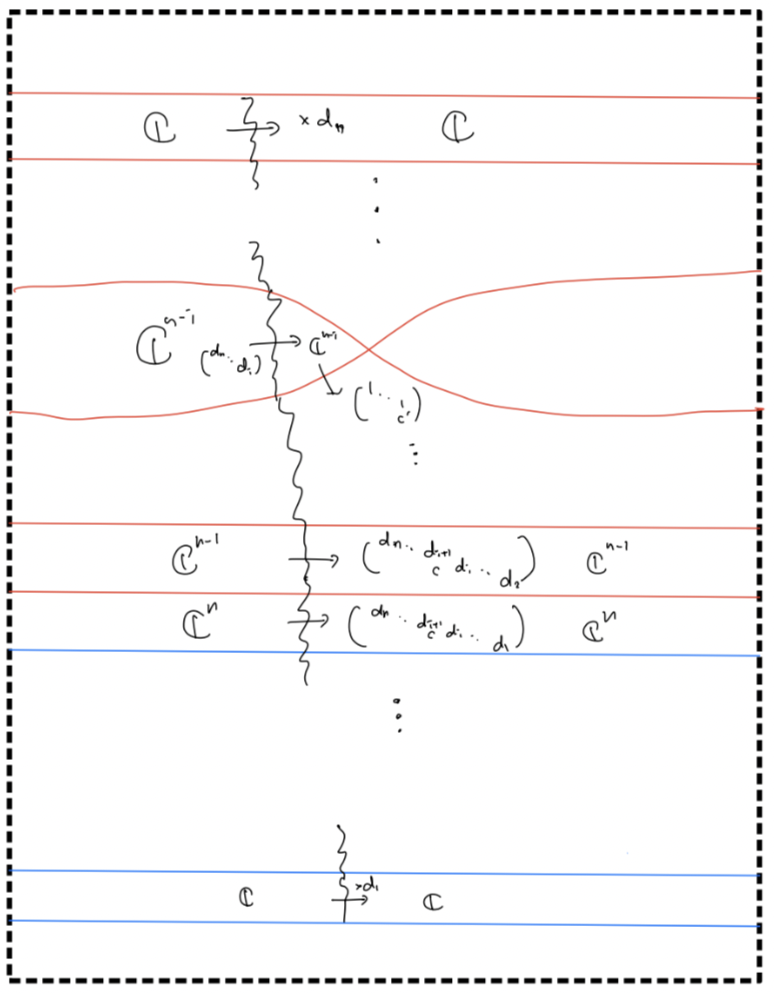 ℂ × dₙ ℂ
⋮
ℂⁿ⁻ⁱ (dₙ ⋱ dᵢ) ℂⁿ⁻ⁱ
(1 ⋱ 1 c')
⋮
ℂⁿ⁻¹ (dₙ ⋱ dᵢ₊₁ c dᵢ ⋱ d₂) ℂⁿ⁻¹
ℂⁿ (dₙ ⋱ dᵢ₊₁ c dᵢ ⋱ d₁) ℂⁿ
⋮
ℂ ×d₁ ℂ